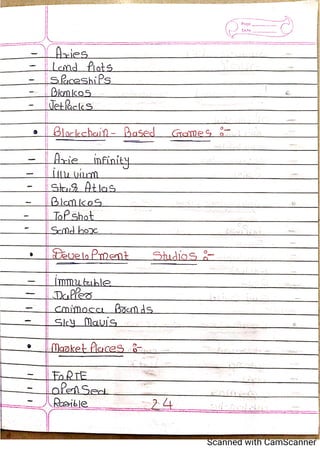 Page
Date
- Axies
- Land Plots
- Spaceships
- Blankos
- JetPacks
• Blockchain - Based Games :-
- Axie infinity
- illuvium
- Star Atlas
- Blankos
- Top shot
- Sand box
• Development Studios :-
- immutable
- Dapper
- animoca Brands
- Sky Mavis
• Market Places :-
- FORTE
- OpenSea
- Rarible
24
Scanned with CamScanner